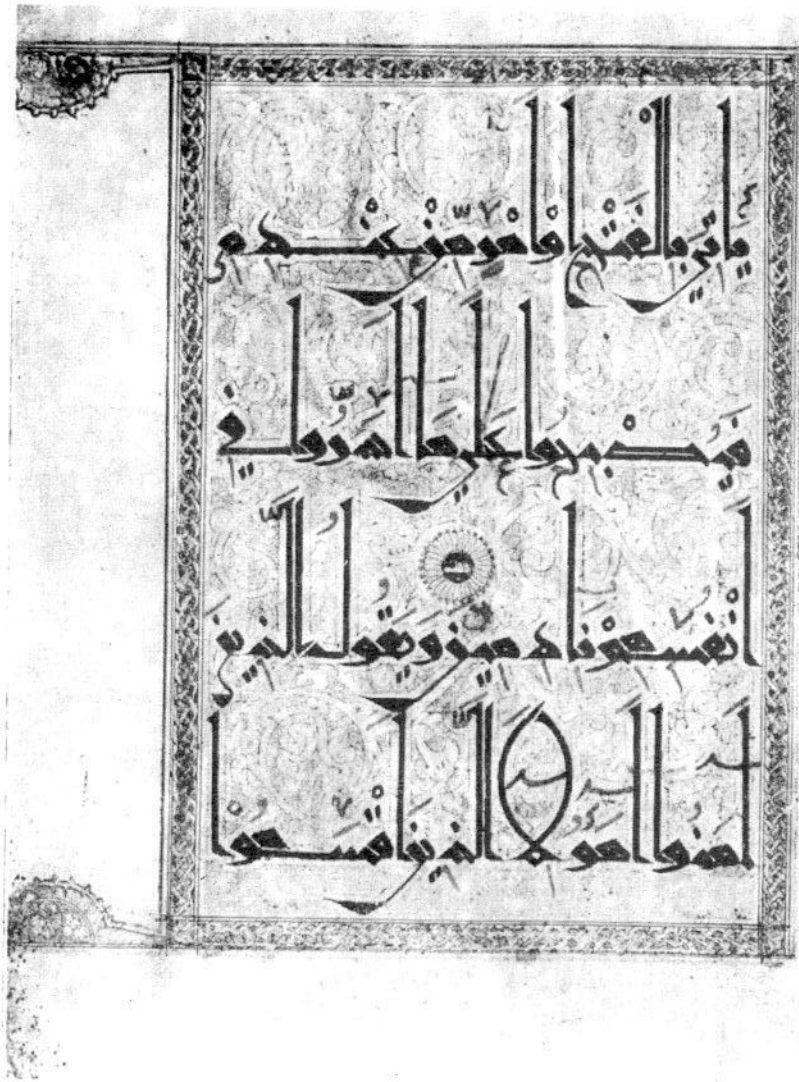 يَأْتِيَ بِالْفَتْحِ أَوْ أَمْرٍ مِّنْ عِنْدِهِ
فَيُصْبِحُوا عَلَى مَا أَسَرُّوا فِي
أَنْفُسِهِمْ نَادِمِينَ وَيَقُولُ الَّذِينَ
آمَنُوا أَهَؤُلَاءِ الَّذِينَ أَقْسَمُوا